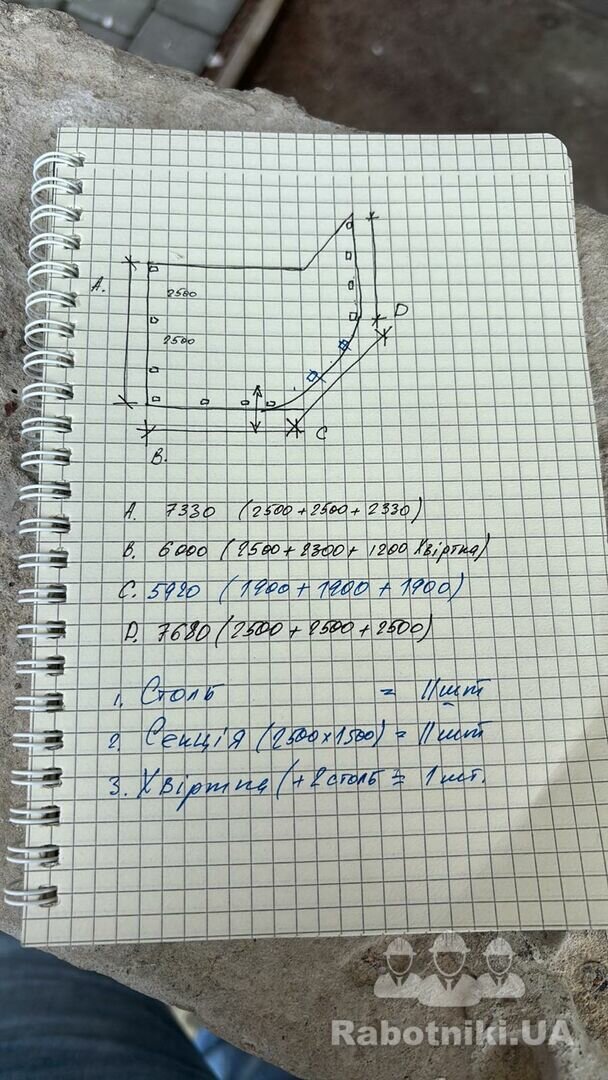 A.
2500
2500
D
C
B.
A. 7330 (2500+2500+2330)
B. 6000 (2500+2300+1200 Хвіртка)
C. 5920 (1900+1900+1900)
D. 7680 (2500+2500+2500)
1. Столб = 11шт
2. Секція (2500х1500) = 11шт
3. Хвіртка (+2столб = 1шт.
Rabotniki.UA